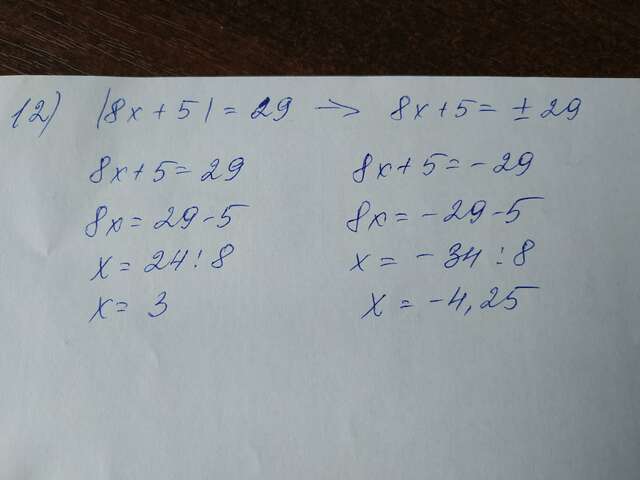 12) |8x + 5| = 29 → 8x + 5 = ± 29
8x + 5 = 29
8x = 29 - 5
x = 24 : 8
x = 3
8x + 5 = - 29
8x = - 29 - 5
x = - 34 : 8
x = - 4,25